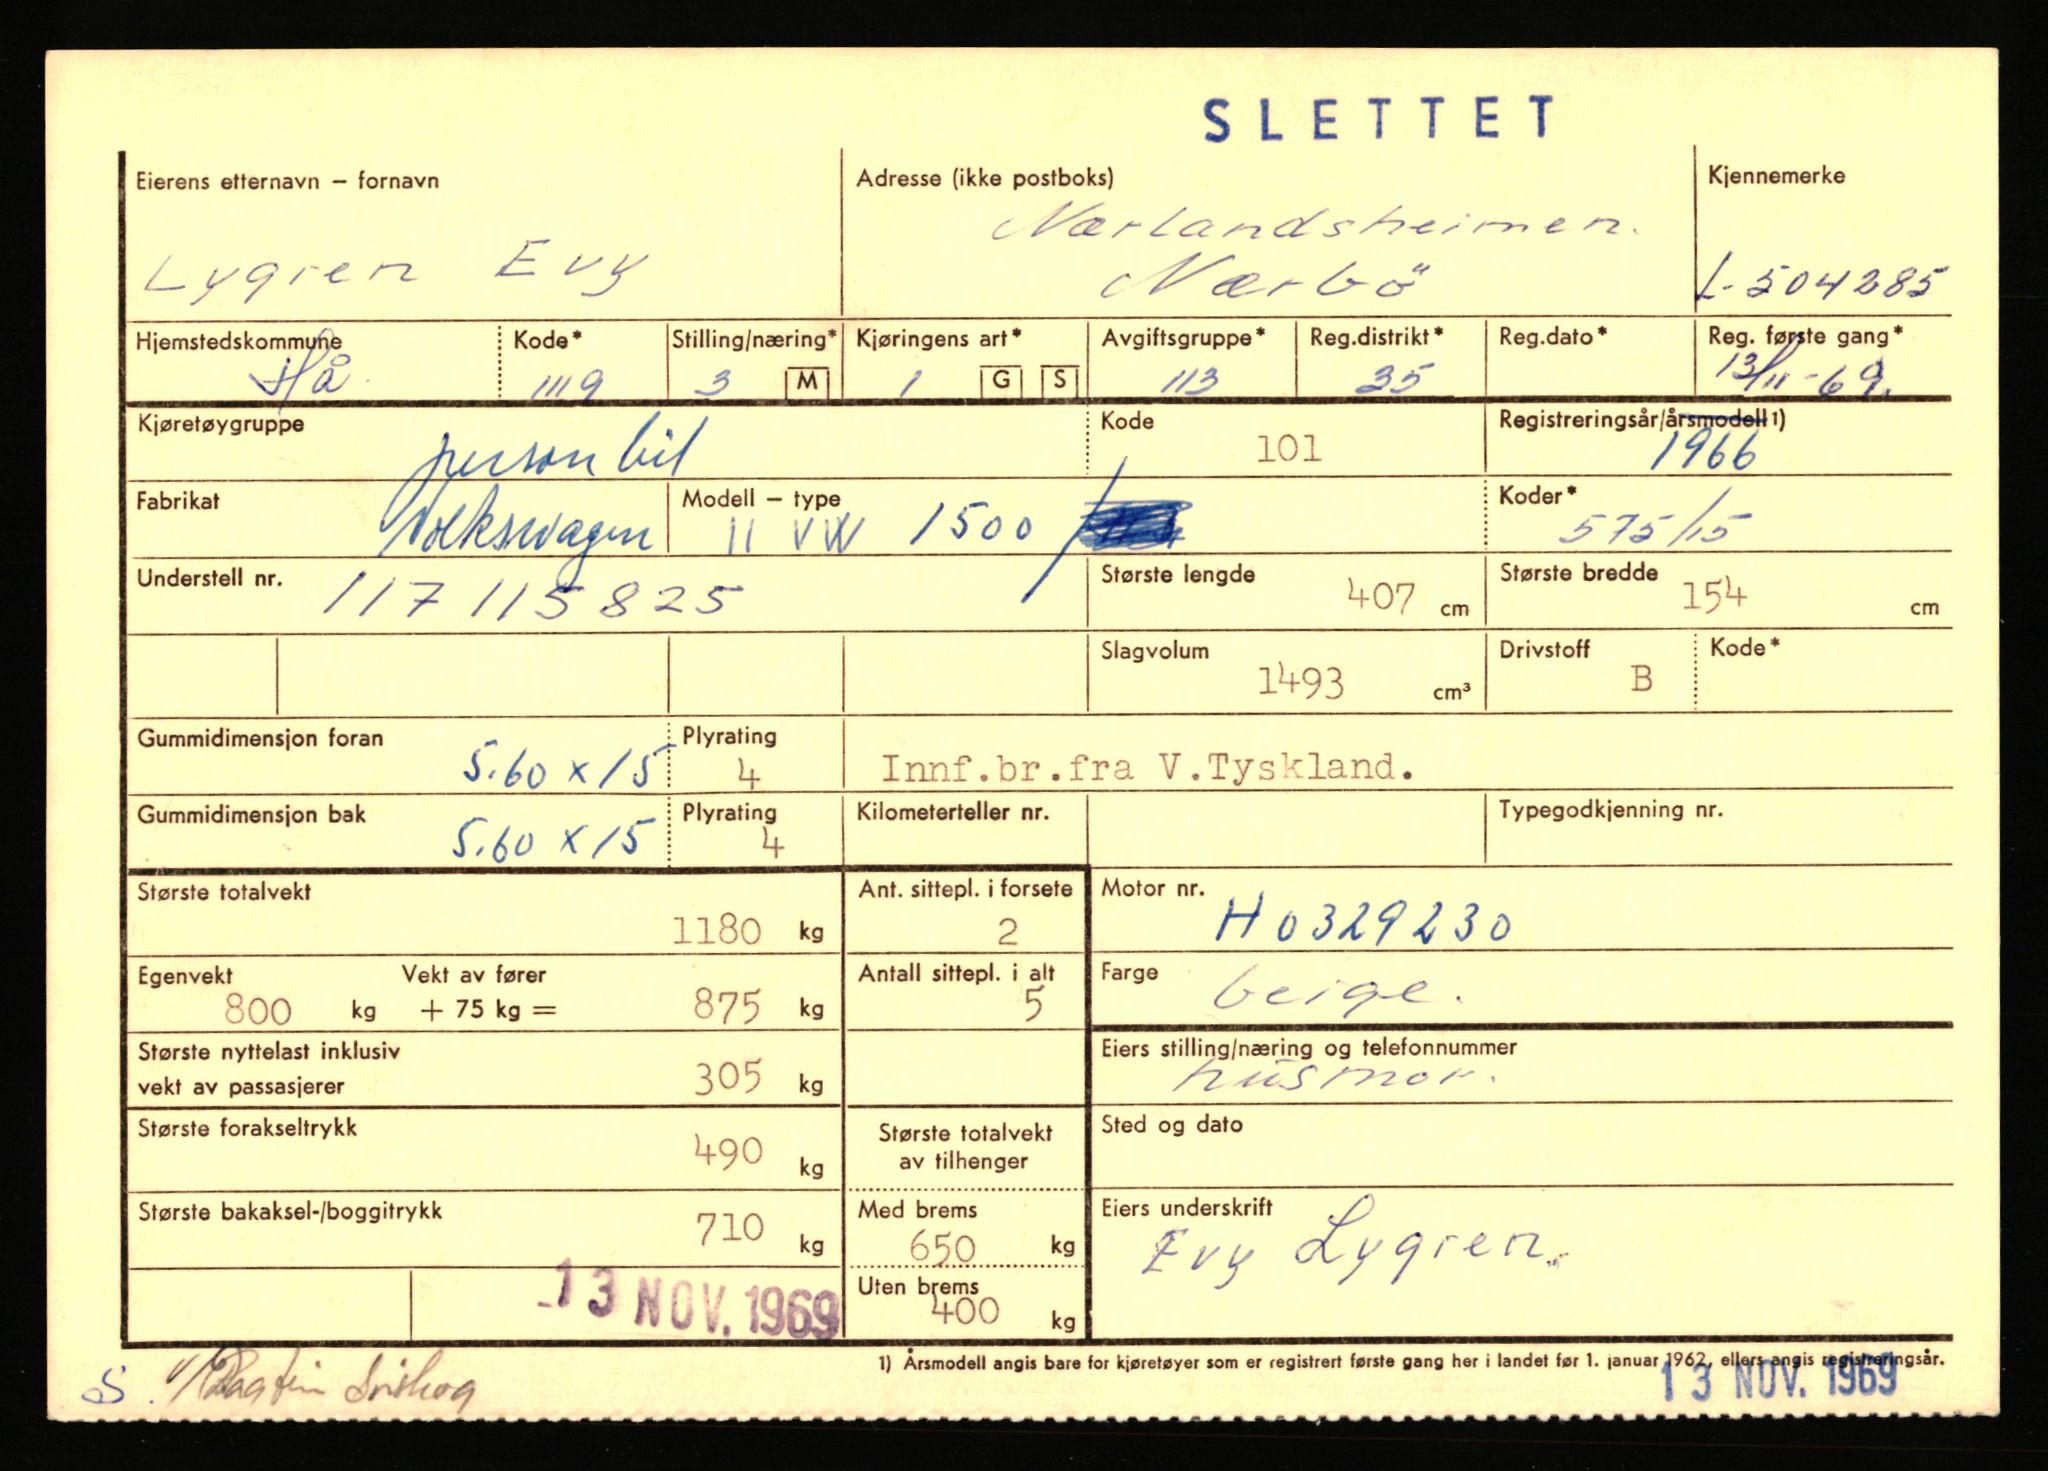 SLETTET
Eierens etternavn – fornavn
Adresse (ikke postboks)
Kjennemerke
Nærlandsheimen.
Lygren Evy
Nærbö
L-504285
Hjemstedskommune
Kode*
Stilling/næring*
Kjøringens art*
Avgiftsgruppe*
Reg.distrikt*
Reg.dato*
Reg. første gang*
Hå
1119
3 M
1 G S
113
35
13/11-69.
Kjøretøygruppe
personbil
Kode
101
Registreringsår/årsmodell 1)
1966
Fabrikat
Volkswagen
Modell – type
11 VW 1500
Koder*
575/15
Understell nr.
117115825
Største lengde
407 cm
Største bredde
154 cm
Slagvolum
1493 cm³
Drivstoff
B
Kode*
Gummidimensjon foran
5.60 x 15
Plyrating
4
Innf.br.fra V.Tyskland.
Gummidimensjon bak
5.60 x 15
Plyrating
4
Kilometerteller nr.
Typegodkjenning nr.
Største totalvekt
1180 kg
Ant. sittepl. i forsete
2
Motor nr.
H0329230
Egenvekt
800 kg
Vekt av fører
+ 75 kg =
875 kg
Antall sittepl. i alt
5
Farge
beige.
Største nyttelast inklusiv
vekt av passasjerer
305 kg
Eiers stilling/næring og telefonnummer
husmor.
Største forakseltrykk
490 kg
Største totalvekt
av tilhenger
Sted og dato
Største bakaksel-/boggitrykk
710 kg
Med brems
650 kg
Eiers underskrift
Evy Lygren.
Uten brems
400 kg
13 NOV. 1969
1) Årsmodell angis bare for kjøretøyer som er registrert første gang her i landet før 1. januar 1962, ellers angis registreringsår.
S.
13 NOV. 1969